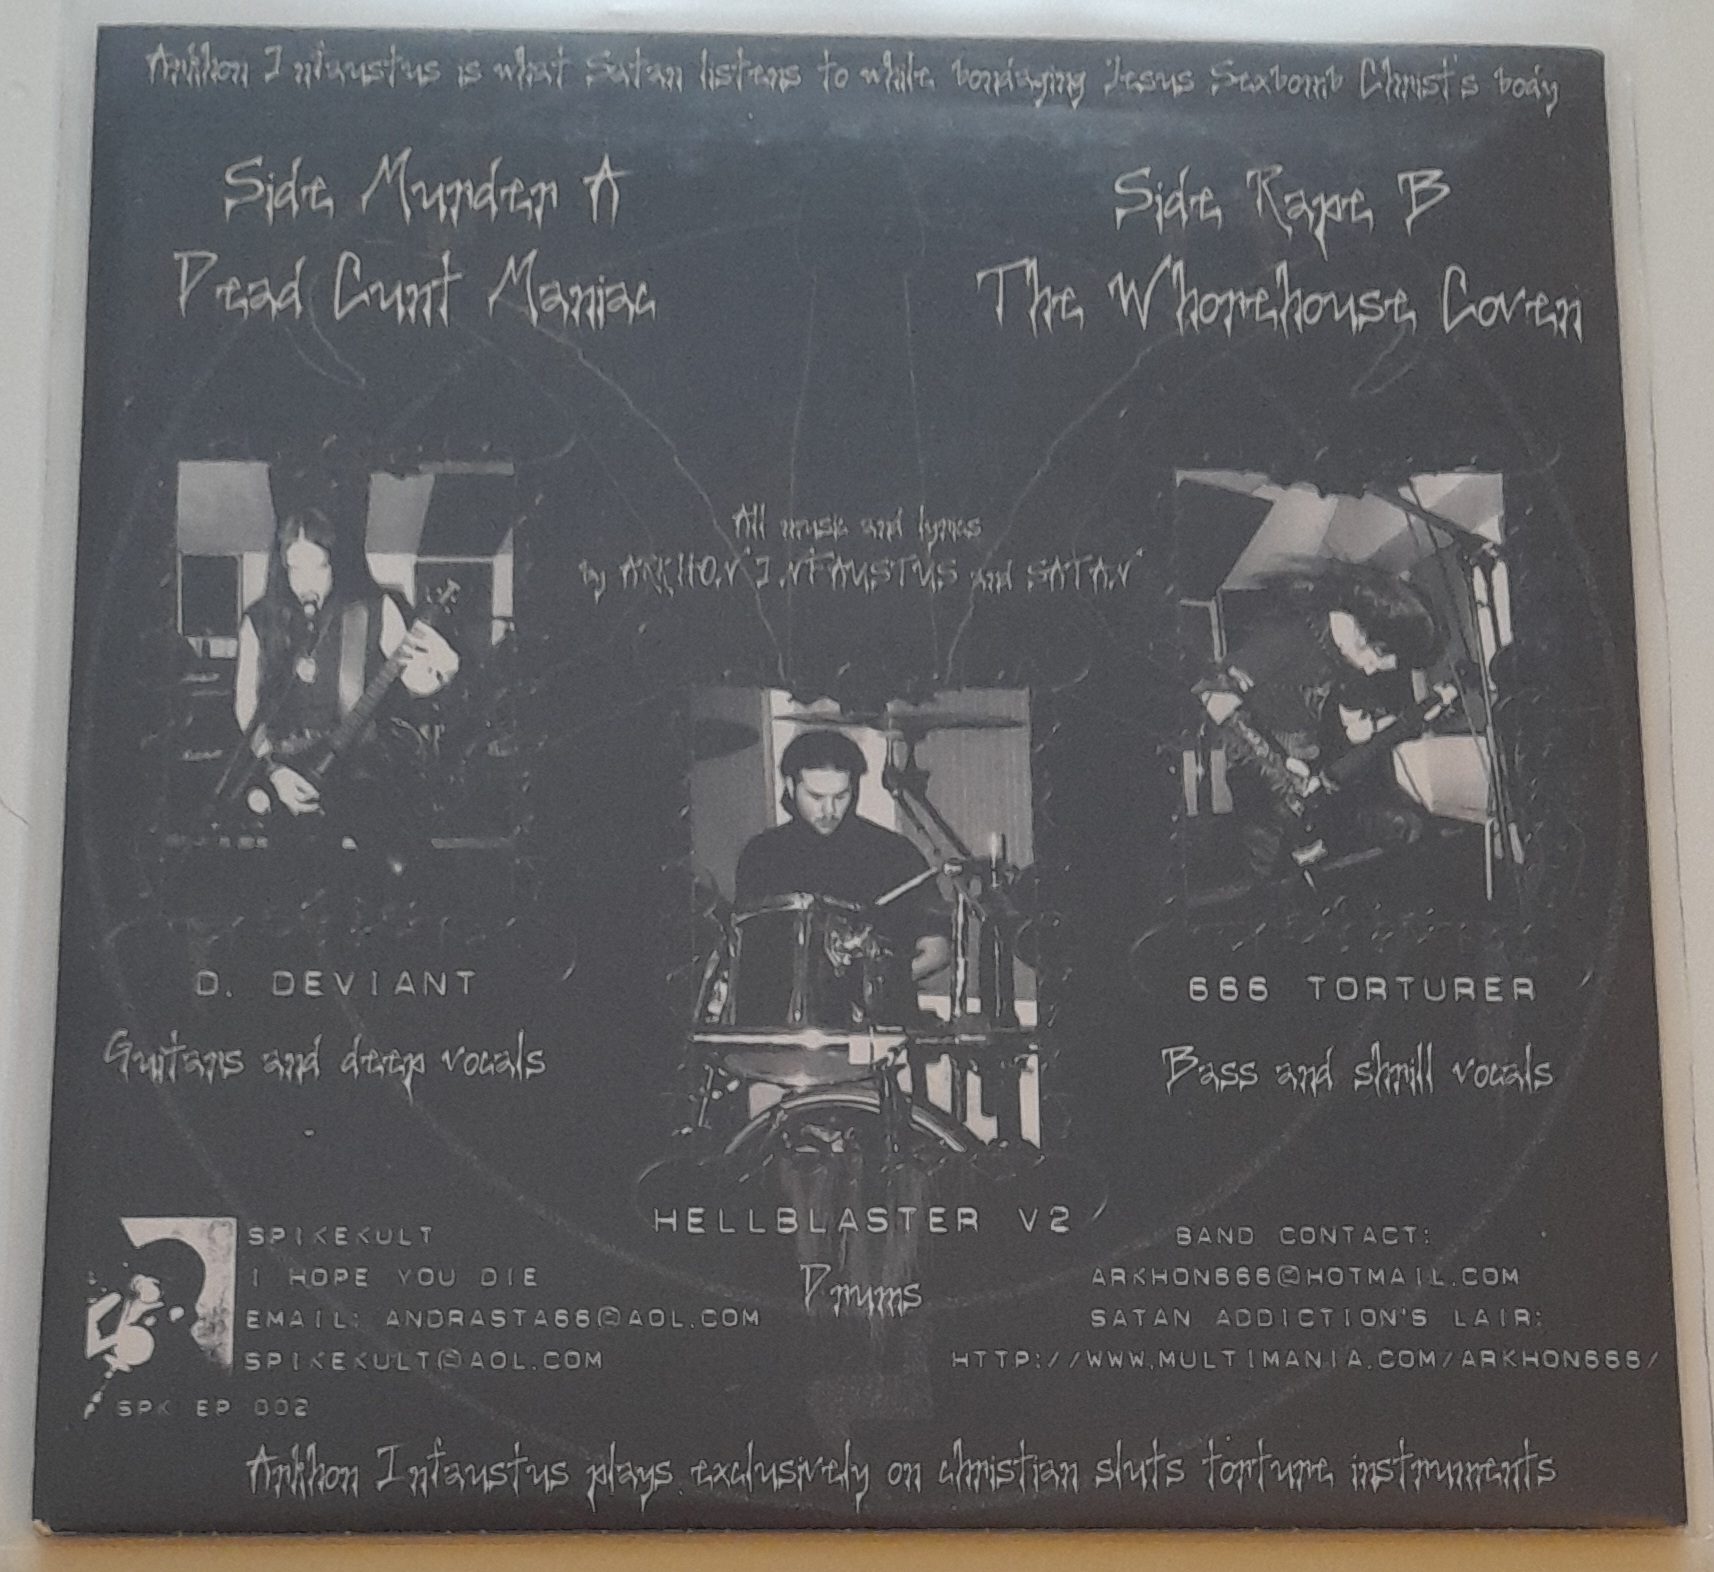 Arkhon Infaustus is what Satan listens to while bondaging Jesus Sexbomb Christ's body
Side Murder A
Dead Cunt Maniac
Side Rape B
The Whorehouse Coven
All music and lyrics
by ARKHON INFAUSTUS and SATAN
D. DEVIANT
Guitars and deep vocals
666 TORTURER
Bass and shrill vocals
HELLBLASTER V2
Drums
SPIKEKULT
I HOPE YOU DIE
EMAIL: ANDRASTA66@AOL.COM
SPIKEKULT@AOL.COM
SPK EP 002
BAND CONTACT:
ARKHON666@HOTMAIL.COM
SATAN ADDICTION'S LAIR:
HTTP://WWW.MULTIMANIA.COM/ARKHON666/
Arkhon Infaustus plays exclusively on christian sluts torture instruments